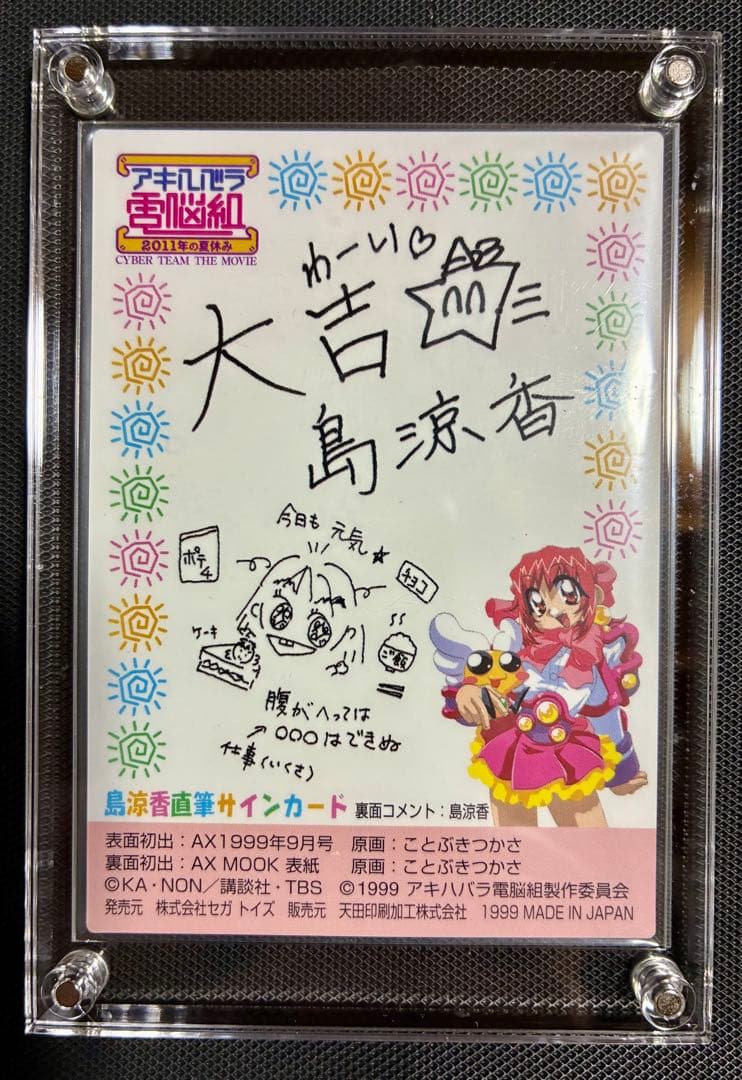 アキハバラ
電脳組
2011年の夏休み
CYBER TEAM THE MOVIE
わーい♡
大吉
島涼香
今日も元気★
ポテチ
チョコ
ケーキ
ご飯
腹がへっては
→○○○はできぬ
仕事(いくさ)
島涼香直筆サインカード 裏面コメント:島涼香
表面初出:AX1999年9月号 原画:ことぶきつかさ
裏面初出:AX MOOK 表紙 原画:ことぶきつかさ
©KA・NON/講談社・TBS ©1999 アキハバラ電脳組製作委員会
発売元 株式会社セガ トイズ 販売元 天田印刷加工株式会社 1999 MADE IN JAPAN